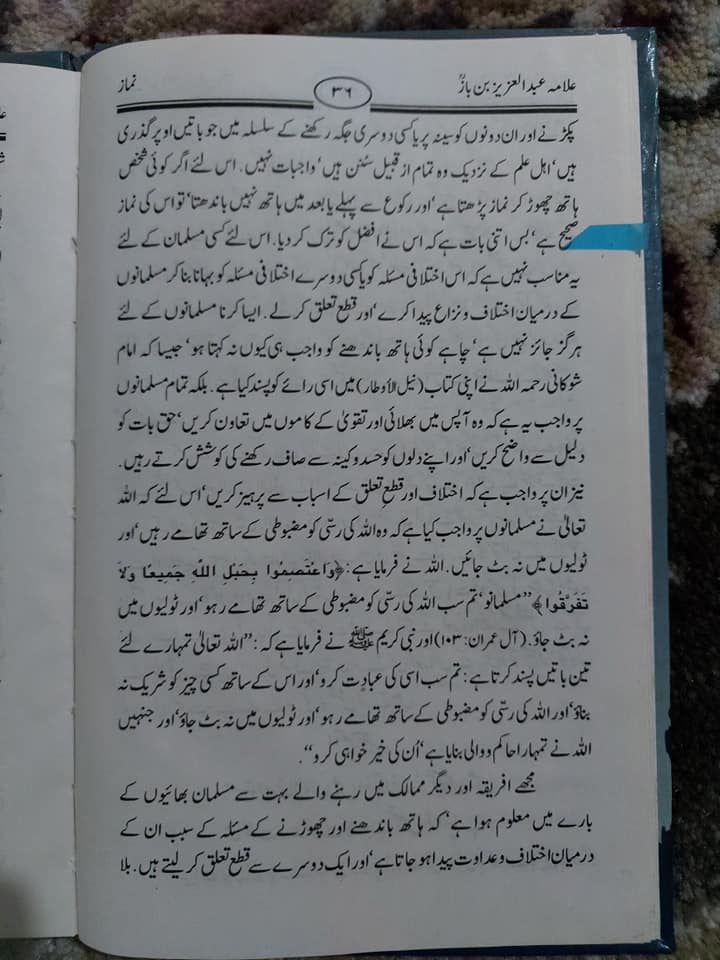 علامہ عبدالعزیز بن بازؒ ۳۶ نماز
پکڑنے اور ان دونوں کو سینہ پر یا کسی دوسری جگہ رکھنے کے سلسلہ میں جو باتیں اوپر گذری
ہیں‘ اھل علم کے نزدیک وہ تمام از قبیل سنن ہیں‘ واجبات نہیں. اس لئے اگر کوئی شخص
ہاتھ چھوڑ کر نماز پڑھتا ہے‘ اور رکوع سے پہلے یا بعد میں ہاتھ نہیں باندھتا‘ تو اس کی نماز
صحیح ہے‘ بس اتنی بات ہے کہ اس نے افضل کو ترک کر دیا. اس لئے کسی مسلمان کے لئے
یہ مناسب نہیں ہے کہ اس اختلافی مسئلہ کو یا کسی دوسرے اختلافی مسئلہ کو بہانا بنا کر مسلمانوں
کے درمیان اختلاف و نزاع پیدا کرے‘ اور قطع تعلق کر لے. ایسا کرنا مسلمانوں کے لئے
ہرگز جائز نہیں ہے‘ چاہے کوئی ہاتھ باندھنے کو واجب ہی کیوں نہ کہتا ہو‘ جیسا کہ امام
شوکانی رحمہ اللہ نے اپنی کتاب (نیل الأوطار) میں اسی رائے کو پسند کیا ہے. بلکہ تمام مسلمانوں
پر واجب یہ ہے کہ وہ آپس میں بھلائی اور تقویٰ کے کاموں میں تعاون کریں‘ حق بات کو
دلیل سے واضح کریں‘ اور اپنے دلوں کو حسد و کینہ سے صاف رکھنے کی کوشش کرتے رہیں.
نیز ان پر واجب ہے کہ اختلاف اور قطعِ تعلق کے اسباب سے پرہیز کریں‘ اس لئے کہ اللہ
تعالیٰ نے مسلمانوں پر واجب کیا ہے کہ وہ اللہ کی رسّی کو مضبوطی کے ساتھ تھامے رہیں‘ اور
ٹولیوں میں نہ بٹ جائیں. اللہ نے فرمایا ہے: ﴿وَاعْتَصِمُوا بِحَبْلِ اللّٰهِ جَمِيعًا وَلاَ
تَفَرَّقُوا﴾ ’’مسلمانو‘ تم سب اللہ کی رسّی کو مضبوطی کے ساتھ تھامے رہو‘ اور ٹولیوں میں
نہ بٹ جاؤ. (آل عمران: ۱۰۳) اور نبی کریم ﷺ نے فرمایا ہے کہ: ’’اللہ تعالیٰ تمہارے لئے
تین باتیں پسند کرتا ہے: تم سب اسی کی عبادت کرو‘ اور اس کے ساتھ کسی چیز کو شریک نہ
بناؤ‘ اور اللہ کی رسّی کو مضبوطی کے ساتھ تھامے رہو‘ اور ٹولیوں میں نہ بٹ جاؤ‘ اور جنہیں
اللہ نے تمہارا حاکم و والی بنایا ہے‘ اُن کی خیر خواہی کرو‘‘.
مجھے افریقہ اور دیگر ممالک میں رہنے والے بہت سے مسلمان بھائیوں کے
بارے میں معلوم ہوا ہے‘ کہ ہاتھ باندھنے اور چھوڑنے کے مسئلہ کے سبب ان کے
درمیان اختلاف و عداوت پیدا ہو جاتا ہے‘ اور ایک دوسرے سے قطع تعلق کر لیتے ہیں. بلا